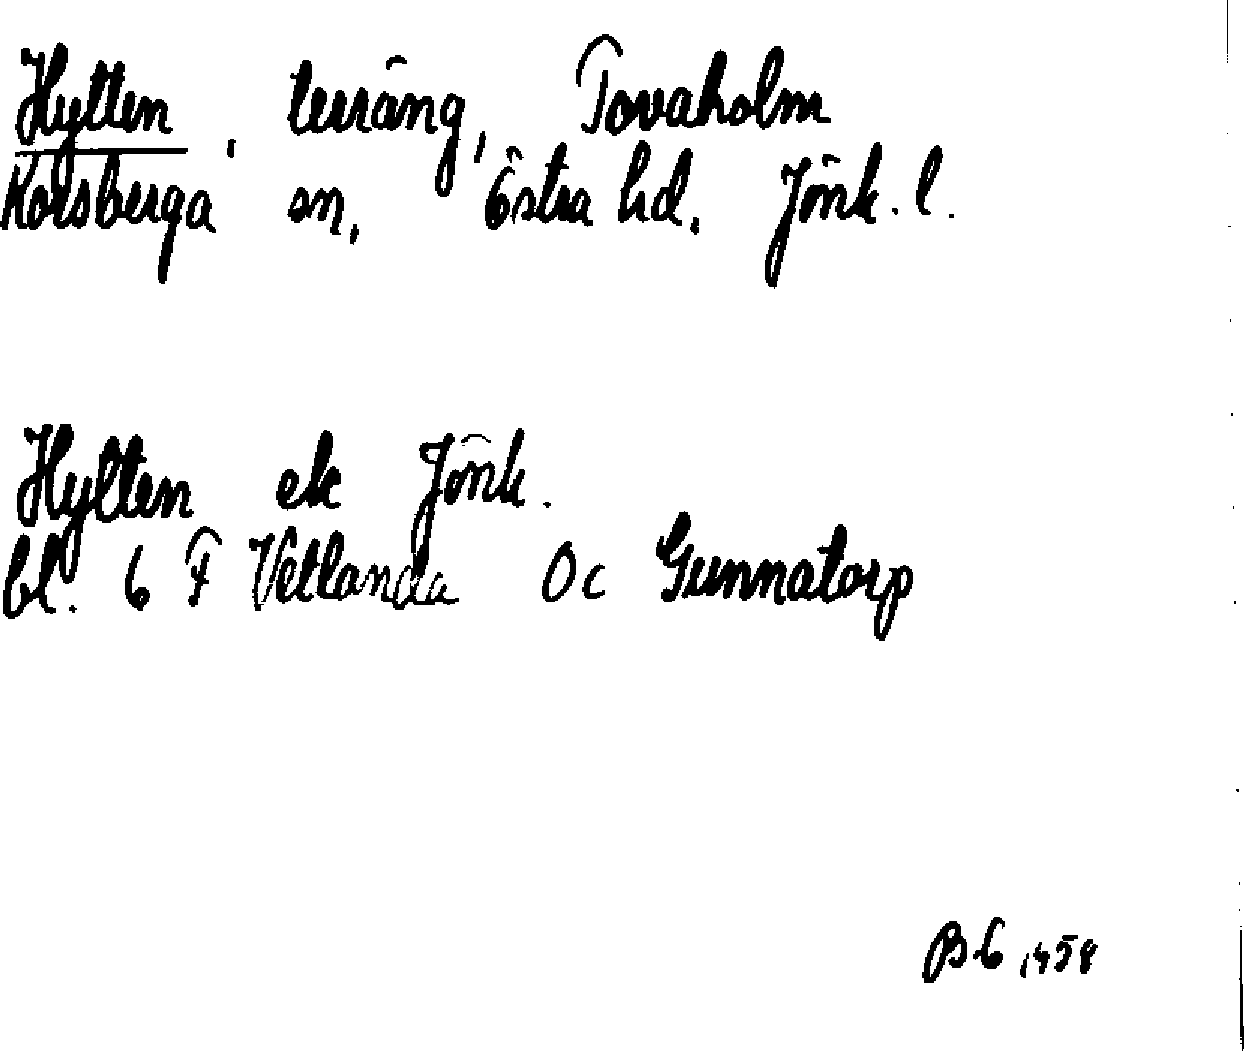 Hylten, terräng, Tovaholm
Korsberga sn. Östra hd. Jönk. l.
Hylten ek Jönk.
bl. 6 F Vetlanda 0c Gunnatorp
BG 1958